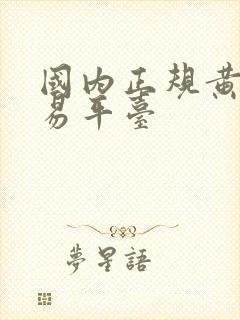 國內正規黃
易平臺
夢星語